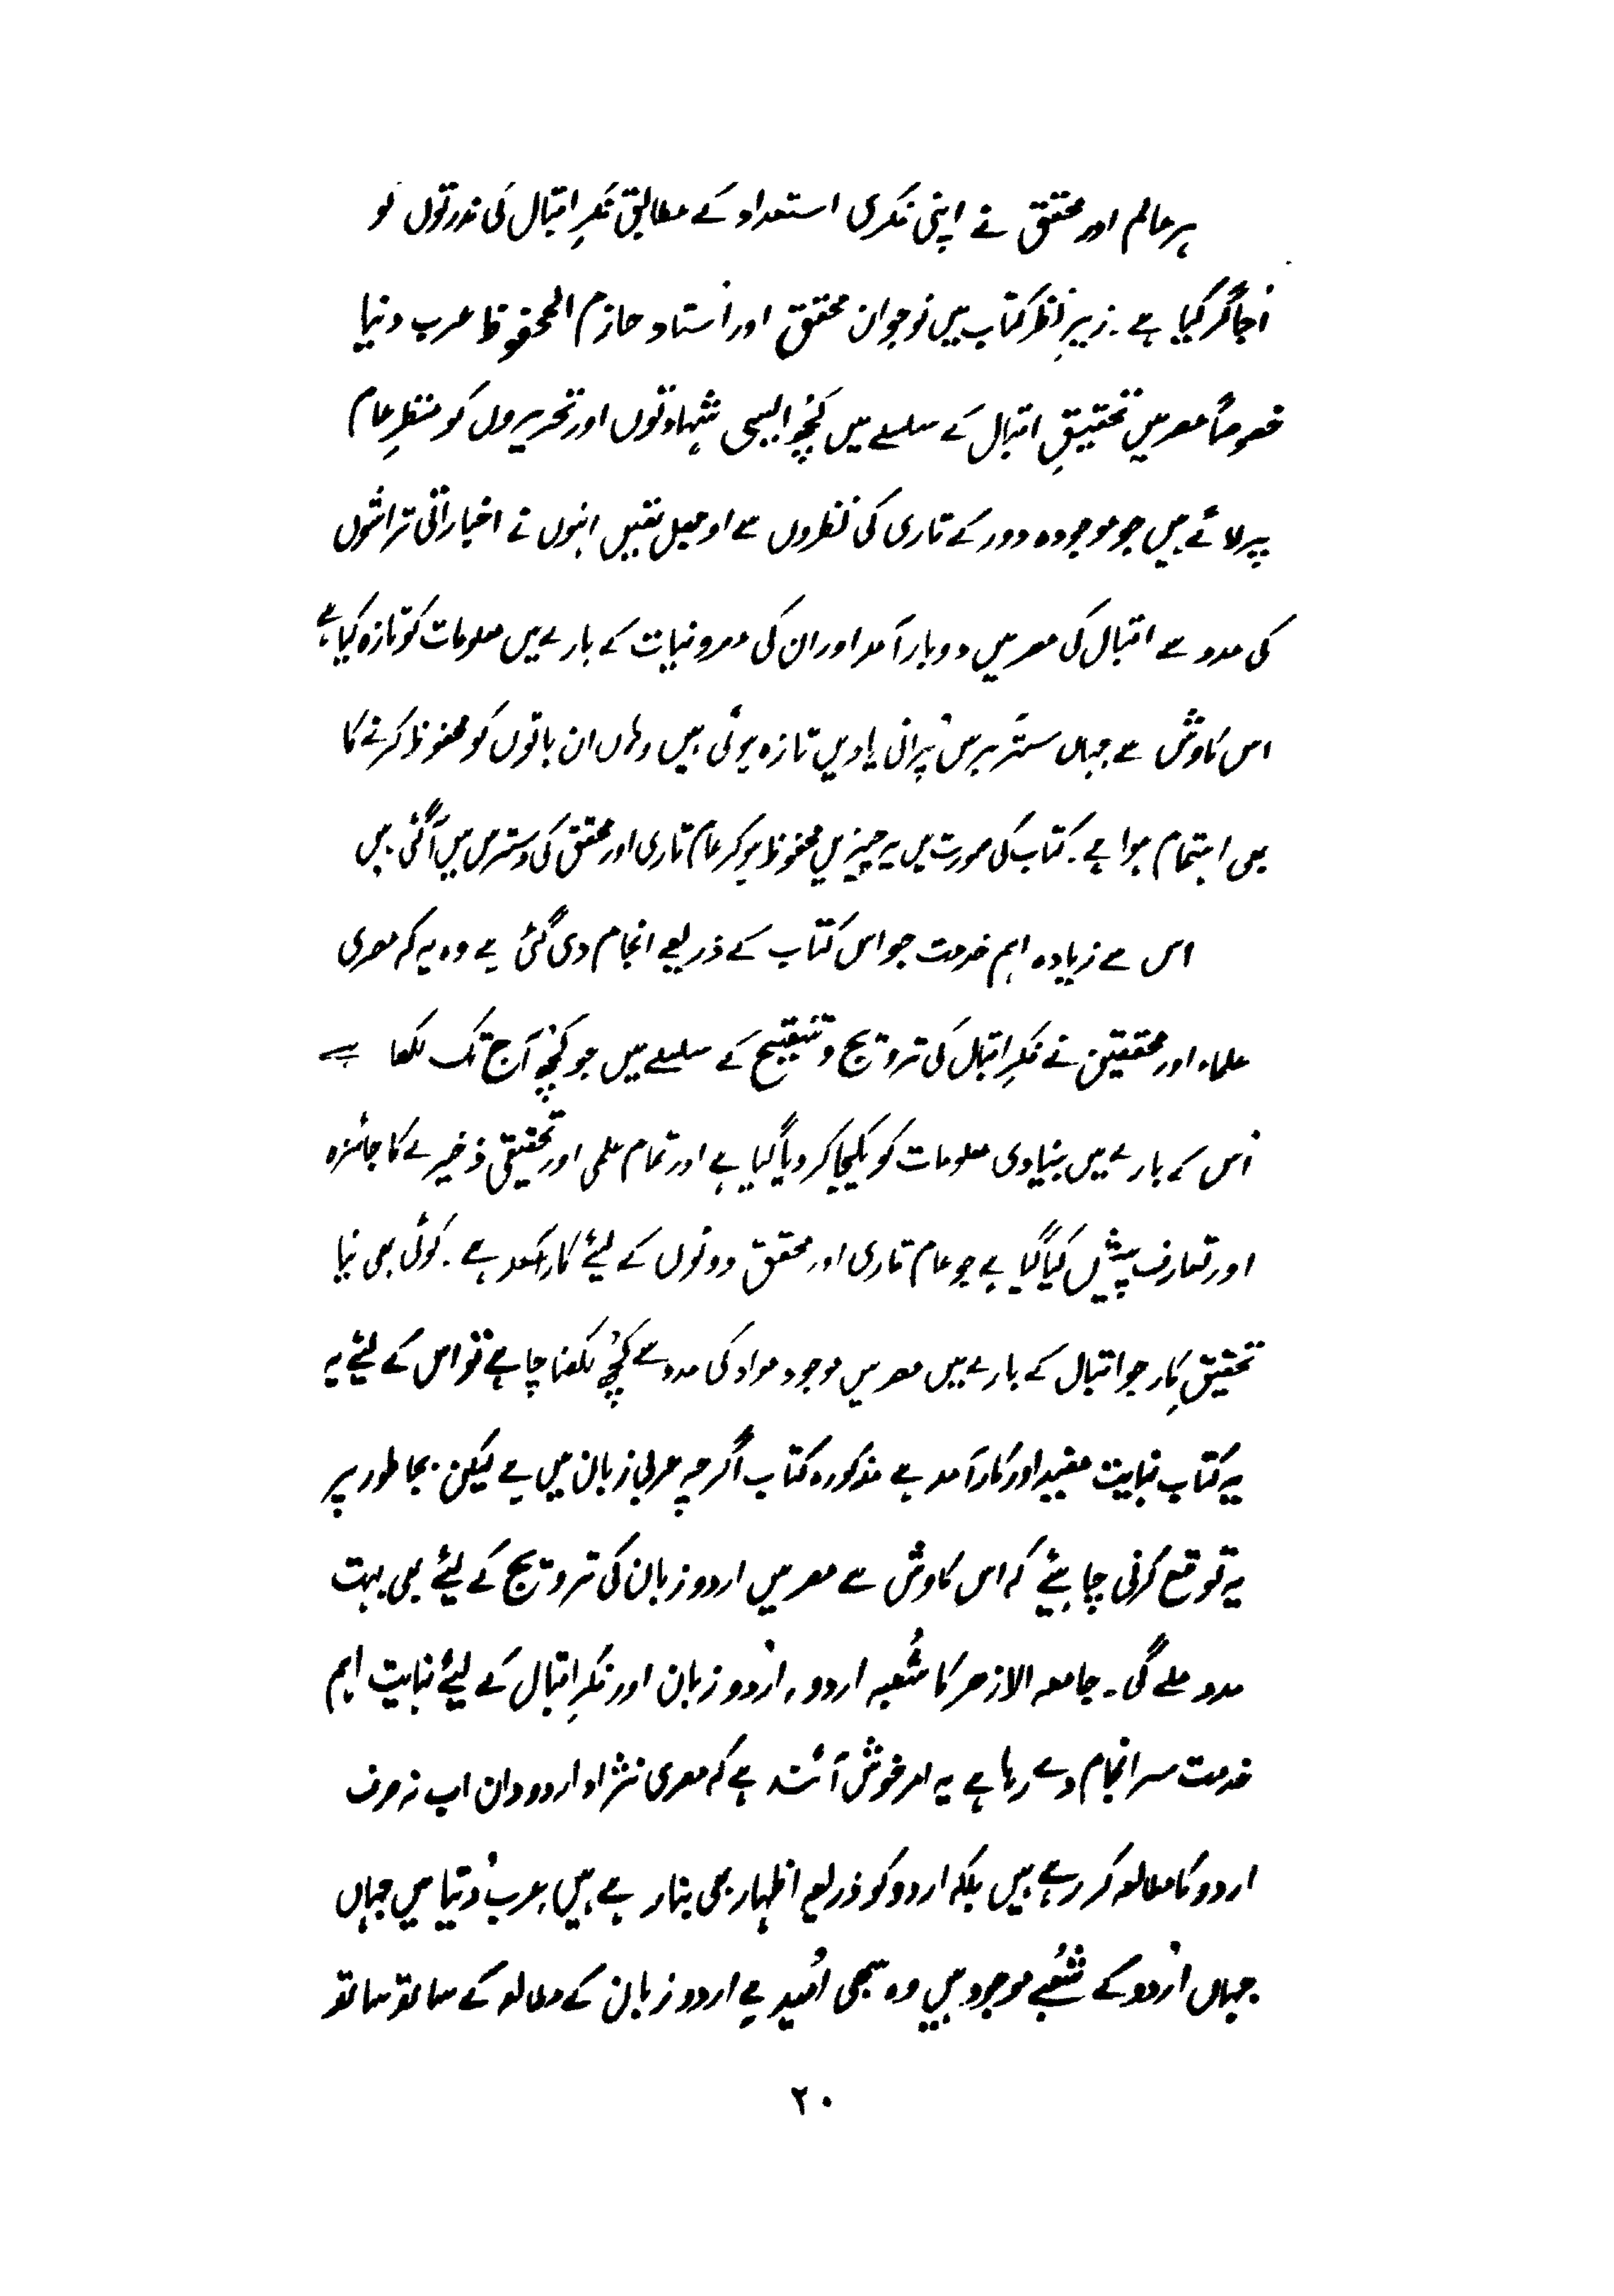 ہر عالم اور محقق نے اپنی فکری استعداد کے مطابق فکرِ اقبال کی ندرتوں کو
اُجاگر کیا ہے۔ زیرِ نظر کتاب میں نوجوان محقق اور اُستاد حازم المحفوظ عرب دنیا
خصوصاً مصر میں تحقیقِ اقبال کے سلسلے میں کچُھ ایسی شہادتوں اور تحریروں کو منظرِ عام
پر لائے ہیں جو موجودہ دور کے قاری کی نظروں سے اوجھل تھیں انہوں نے اخباراتی تراشوں
کی مدد سے اقبال کی مصر میں دوبار آمد اور ان کی مصروفیات کے بارے میں معلومات کو تازہ کیا ہے
اس کاوش سے جہاں ستّر برس پُرانی یادیں تازہ ہوئی ہیں وہاں ان باتوں کو محفوظ کرنے کا
بھی اہتمام ہوا ہے۔ کتاب کی صورت میں یہ چیزیں محفوظ ہو کر عام قاری اور محقق کی دسترس میں آگئی ہیں
اس سے زیادہ اہم خدمت جو اس کتاب کے ذریعے انجام دی گئی ہے وہ یہ کہ مصری
علماء اور محققین نے فکرِ اقبال کی ترویج و تنقیح کے سلسلے میں جو کچُھ آج تک لکھا ہے
اُس کے بارے میں بنیادی معلومات کو یکجا کر دیا گیا ہے اور تمام علمی اور تحقیقی ذخیرے کا جائزہ
اور تعارف پیش کیا گیا ہے جو عام قاری اور محقق دونوں کے لیئے کارآمد ہے۔ کوئی بھی نیا
تحقیق کار جو اقبال کے بارے میں مصر میں موجود مواد کی مدد سے کچُھ لکھنا چاہے تو اس کے لیئے یہ
یہ کتاب نہایت مفید اور کارآمد ہے مذکورہ کتاب اگرچہ عربی زبان میں ہے لیکن بجا طور پر
یہ توقع کرنی چاہیئے کہ اس کاوش سے مصر میں اردو زبان کی ترویج کے لیئے بھی بہت
مدد ملے گی۔ جامعہ الازھر کا شُعبہ اردو، اُردو زبان اور فکرِ اقبال کے لیئے نہایت اہم
خدمت سر انجام دے رہا ہے یہ امر خوش آئند ہے کہ مصری نژاد اردو دان اب نہ صرف
اردو کا مطالعہ کر رہے ہیں بلکہ اردو کو ذریعہ اظہار بھی بنا رہے ہیں، عرب دُنیا میں جہاں
جہاں اُردو کے شُعبے موجود ہیں وہ سبھی اُمید ہے اردو زبان کے مطالعہ کے ساتھ ساتھ
۲۰